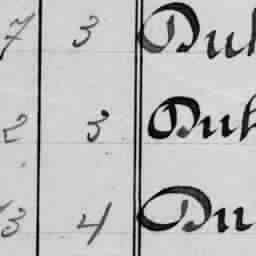 7 3 Duh
2 3 Duh
3 4 Du